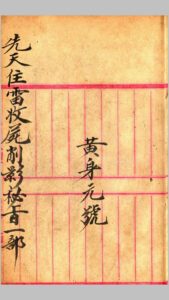 先天住雷收屍削影秘旨一部
黃身元號